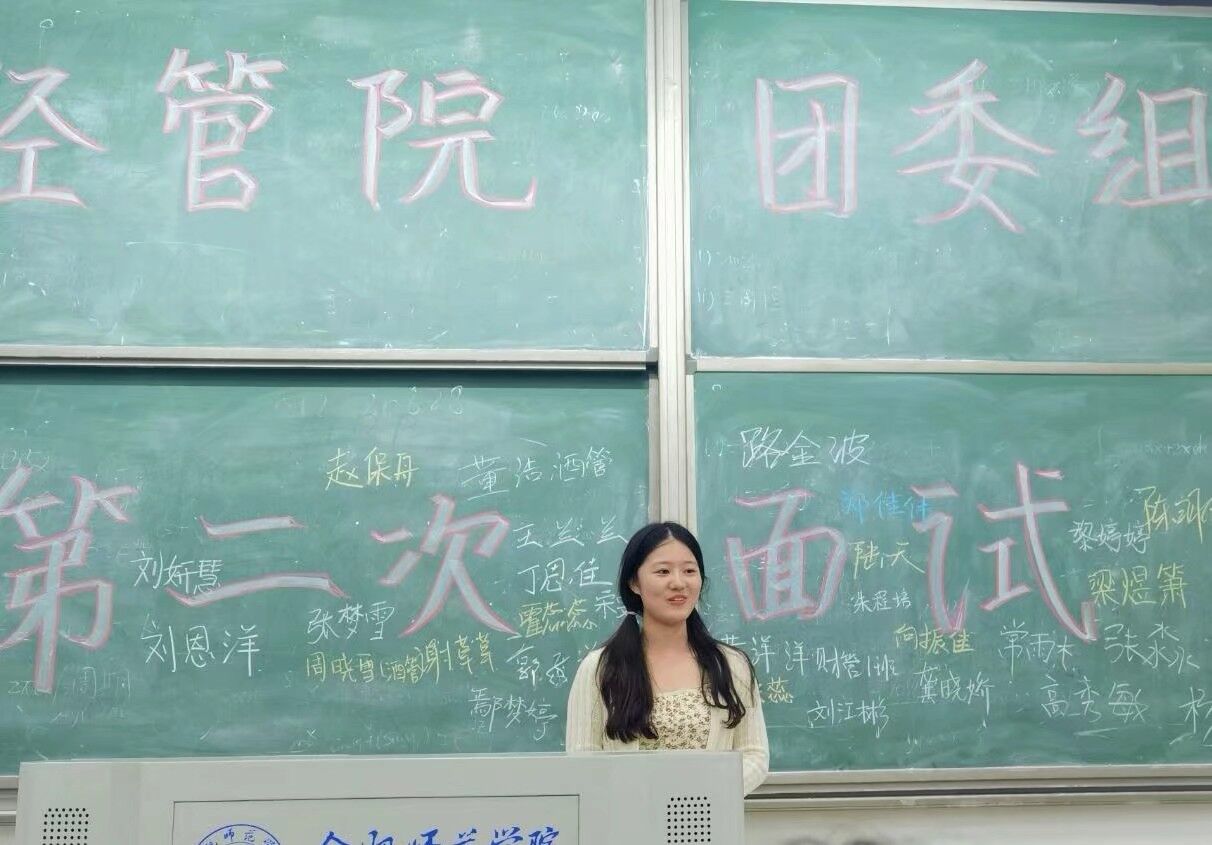 经管院 团委组
第二次 面试
赵保丹
董浩酒管
路金波
郑佳伟
王兰兰
黎婷婷
刘妍慧
丁恩佳
陆天
梁煜箫
张梦雪
霍蕊蕊
朱程培
刘恩洋
周晓雪(酒管)
谢草草
洋洋财管1班
向振佳
常雨木
张淼淼
鄢梦婷
蕊
刘江彬
龚晓娇
高秀敏
合肥师范学院